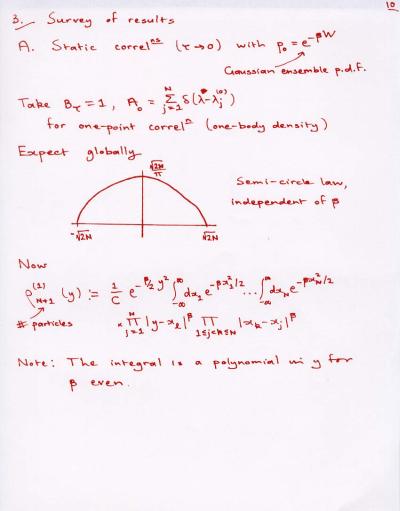 10
3. Survey of results
A. Static correl^ns (τ→0) with p₀ = e^{-βW}
Gaussian ensemble p.d.f.
Take B_τ = 1, A₀ = Σ_{j=1}^{N} δ(λ-λ_j^{(0)})
for one-point correl^n (one-body density)
Expect globally
√2N/π
Semi-circle law,
independent of β
-√2N √2N
Now
ρ_{N+1}^{(1)}(y) := 1/C e^{-β/2 y²} ∫_{-∞}^{∞} dx₁ e^{-βx₁²/2} ... ∫_{-∞}^{∞} dx_N e^{-βx_N²/2}
# particles
× Π_{j=1}^{N} |y-x_ℓ|^β Π_{1≤j<k≤N} |x_k-x_j|^β
Note: The integral is a polynomial in y for
β even.